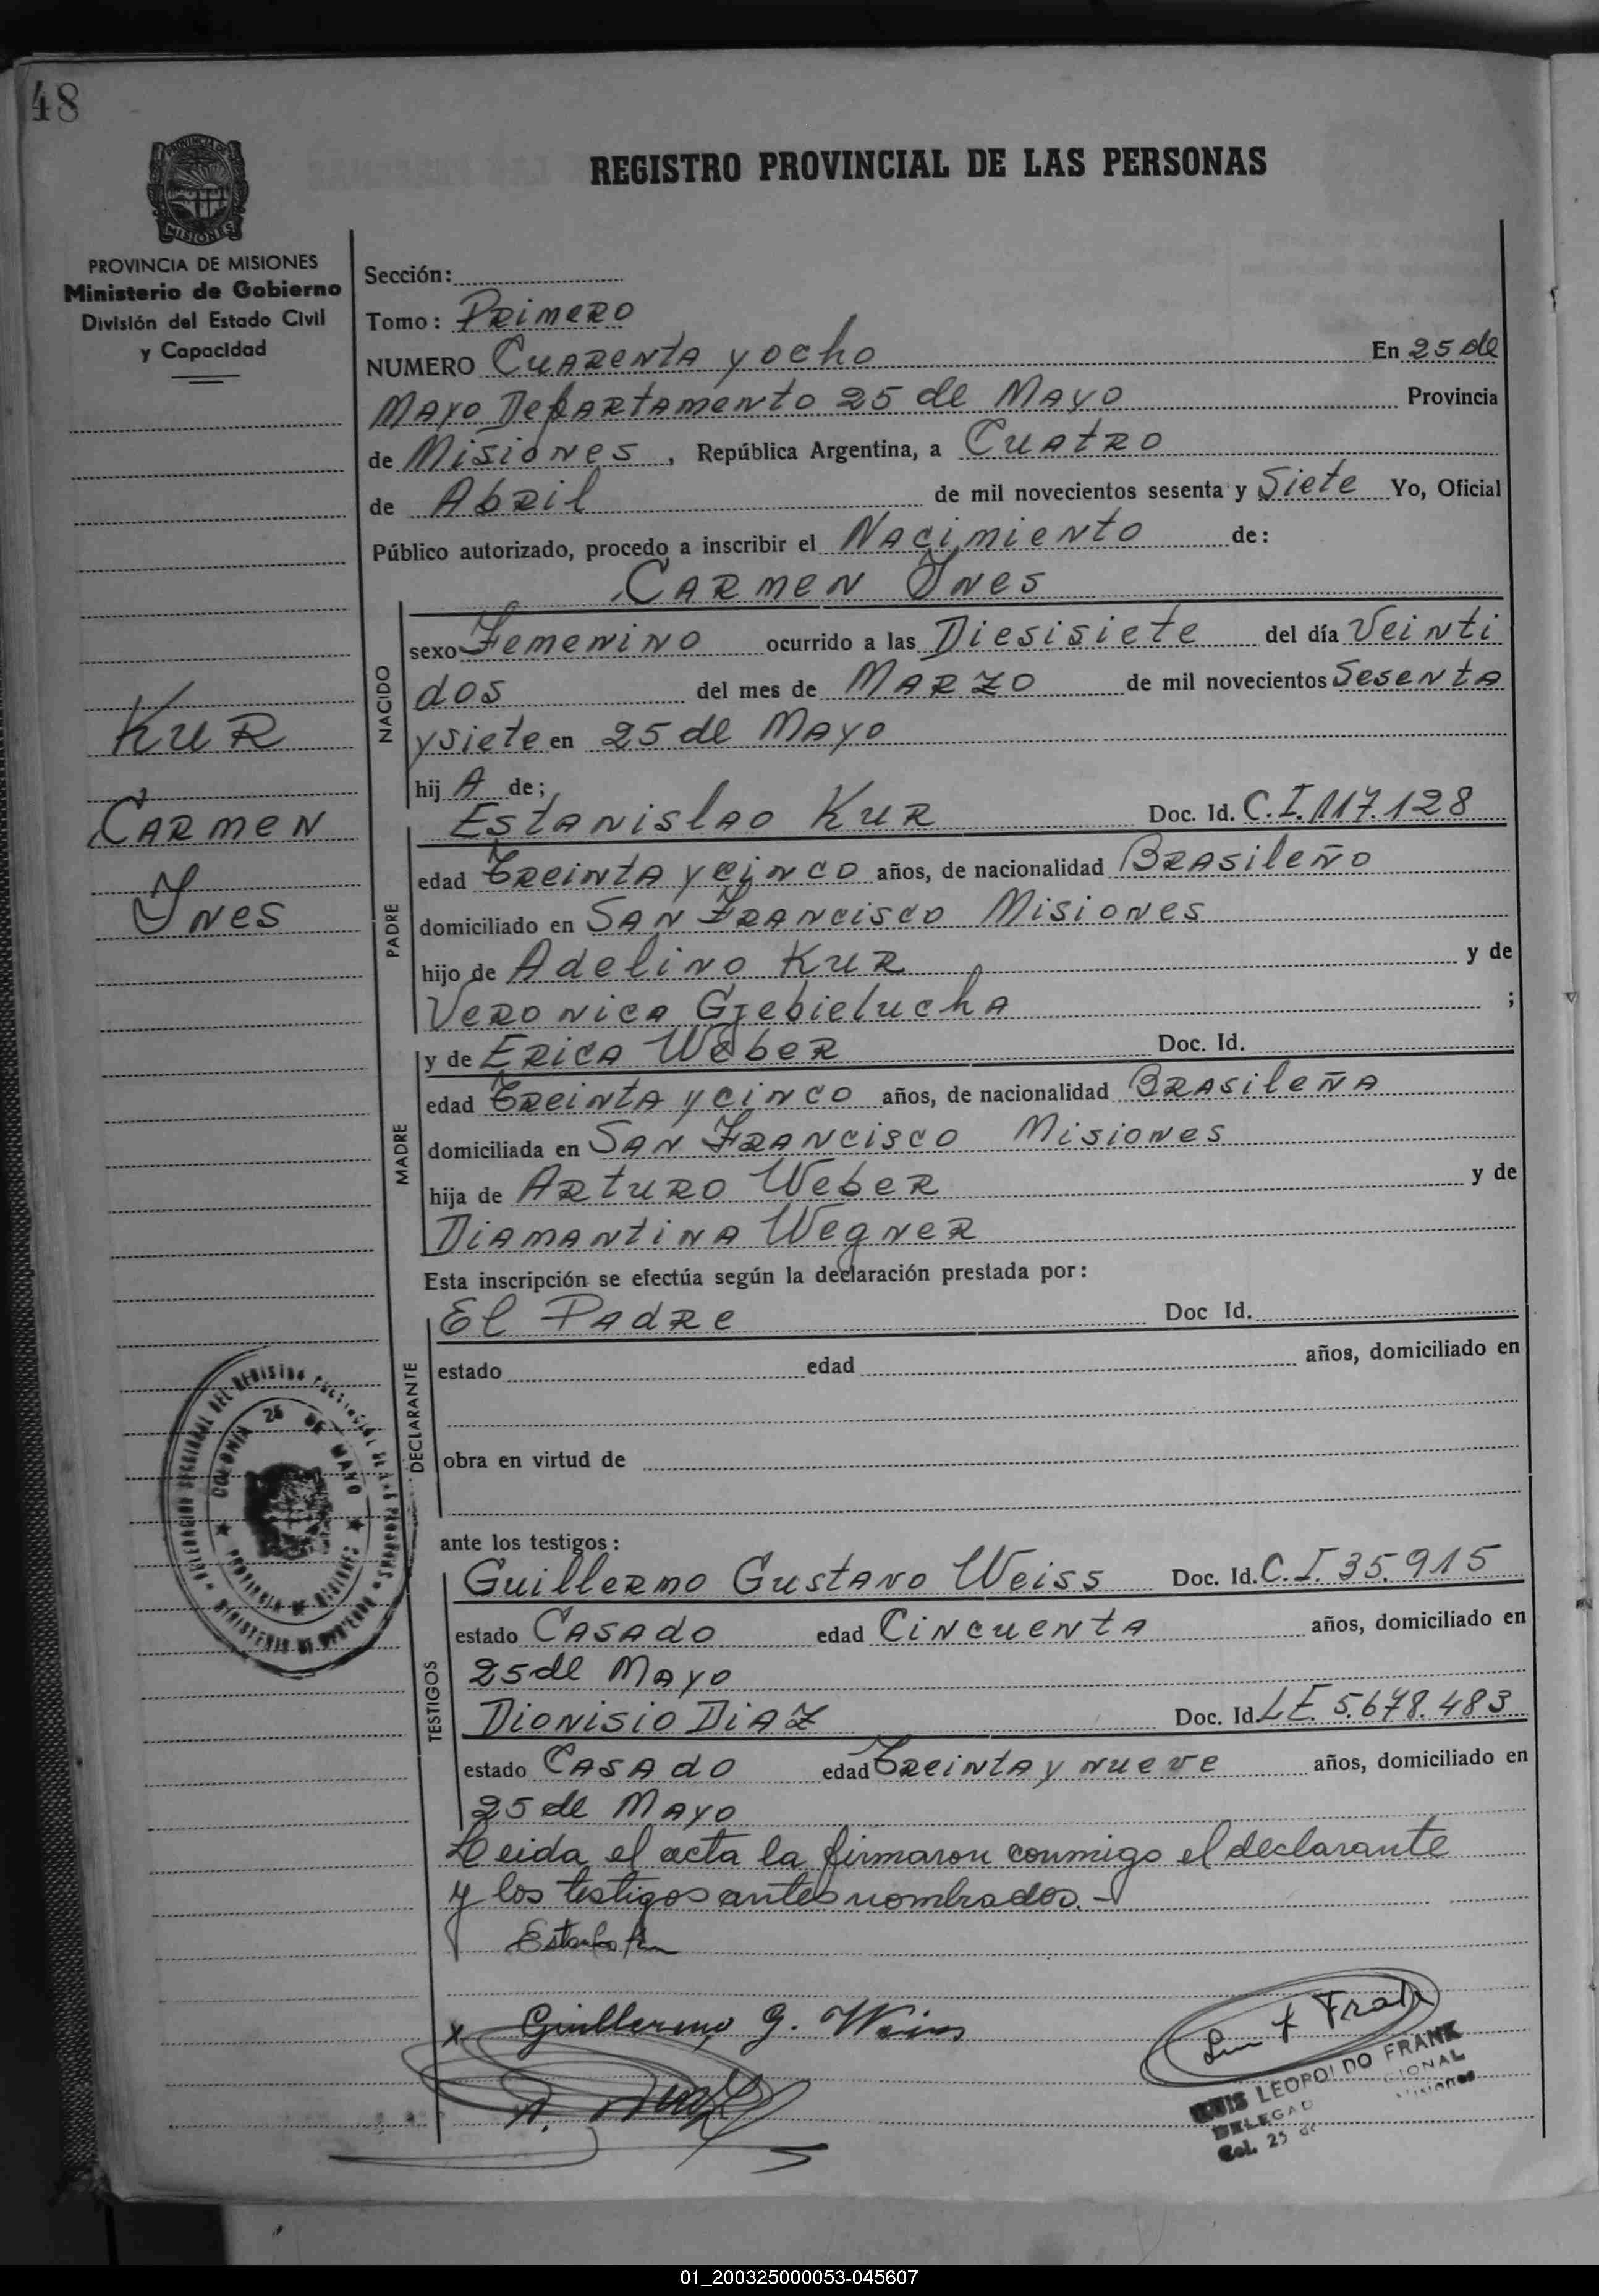 48
REGISTRO PROVINCIAL DE LAS PERSONAS
PROVINCIA DE
MISIONES
PROVINCIA DE MISIONES
Ministerio de Gobierno
División del Estado Civil
y Capacidad
Sección:
Tomo: Primero
NUMERO Cuarenta y ocho En 25 de
Mayo Departamento 25 de Mayo Provincia
de Misiones, República Argentina, a Cuatro
de Abril de mil novecientos sesenta y Siete Yo, Oficial
Público autorizado, procedo a inscribir el Nacimiento de:
Carmen Ynes
NACIDO
sexo Femenino ocurrido a las Diesisiete del día Veinti
dos del mes de Marzo de mil novecientos Sesenta
y siete en 25 de Mayo
hij A de;
Kur
Carmen
Ynes
PADRE
Estanislao Kur Doc. Id. C.I. 117.128
edad Treinta y cinco años, de nacionalidad Brasileño
domiciliado en San Francisco Misiones
hijo de Adelino Kur y de
Veronica Gjebielucha ;
MADRE
y de Erica Weber Doc. Id.
edad Treinta y cinco años, de nacionalidad Brasileña
domiciliada en San Francisco Misiones
hija de Arturo Weber y de
Diamantina Wegner
Esta inscripción se efectúa según la declaración prestada por:
DECLARANTE
El Padre Doc Id.
estado edad años, domiciliado en
obra en virtud de
COLONIA 25 DE MAYO
PROVINCIA DE MISIONES
ante los testigos:
TESTIGOS
Guillermo Gustavo Weiss Doc. Id. C.I. 35.915
estado Casado edad Cincuenta años, domiciliado en
25 de Mayo
Dionisio Diaz Doc. Id. LE 5.678.483
estado Casado edad Treinta y nueve años, domiciliado en
25 de Mayo
Leida el acta la firmaron conmigo el declarante
y los testigos antes nombrados.-
x Guillermo G. Weiss
LUIS LEOPOLDO FRANK
DELEGAD CIONAL
Col. 25 de Misiones
01_200325000053-045607